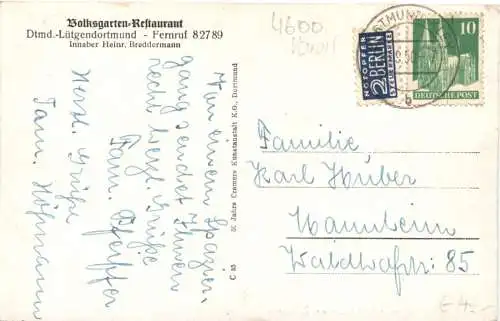 Volksgarten-Restaurant
Dtmd.-Lütgendortmund - Fernruf 82789
Inhaber Heinr. Breddermann
Von einem Spazier-
gang sendet Ihnen
recht herzl. Grüße
Fam. Pfeiffer
Herzl. Grüße
Fam. Hofmann
50 Jahre Cramers Kunstanstalt K.G., Dortmund
C 85
4600
DORTMUND
b
NOTOPFER
2 BERLIN
STEUERMARKE
10
DEUTSCHE POST
Familie
Karl Huber
Mannheim
Waldhofstr. 85
€ 4,-